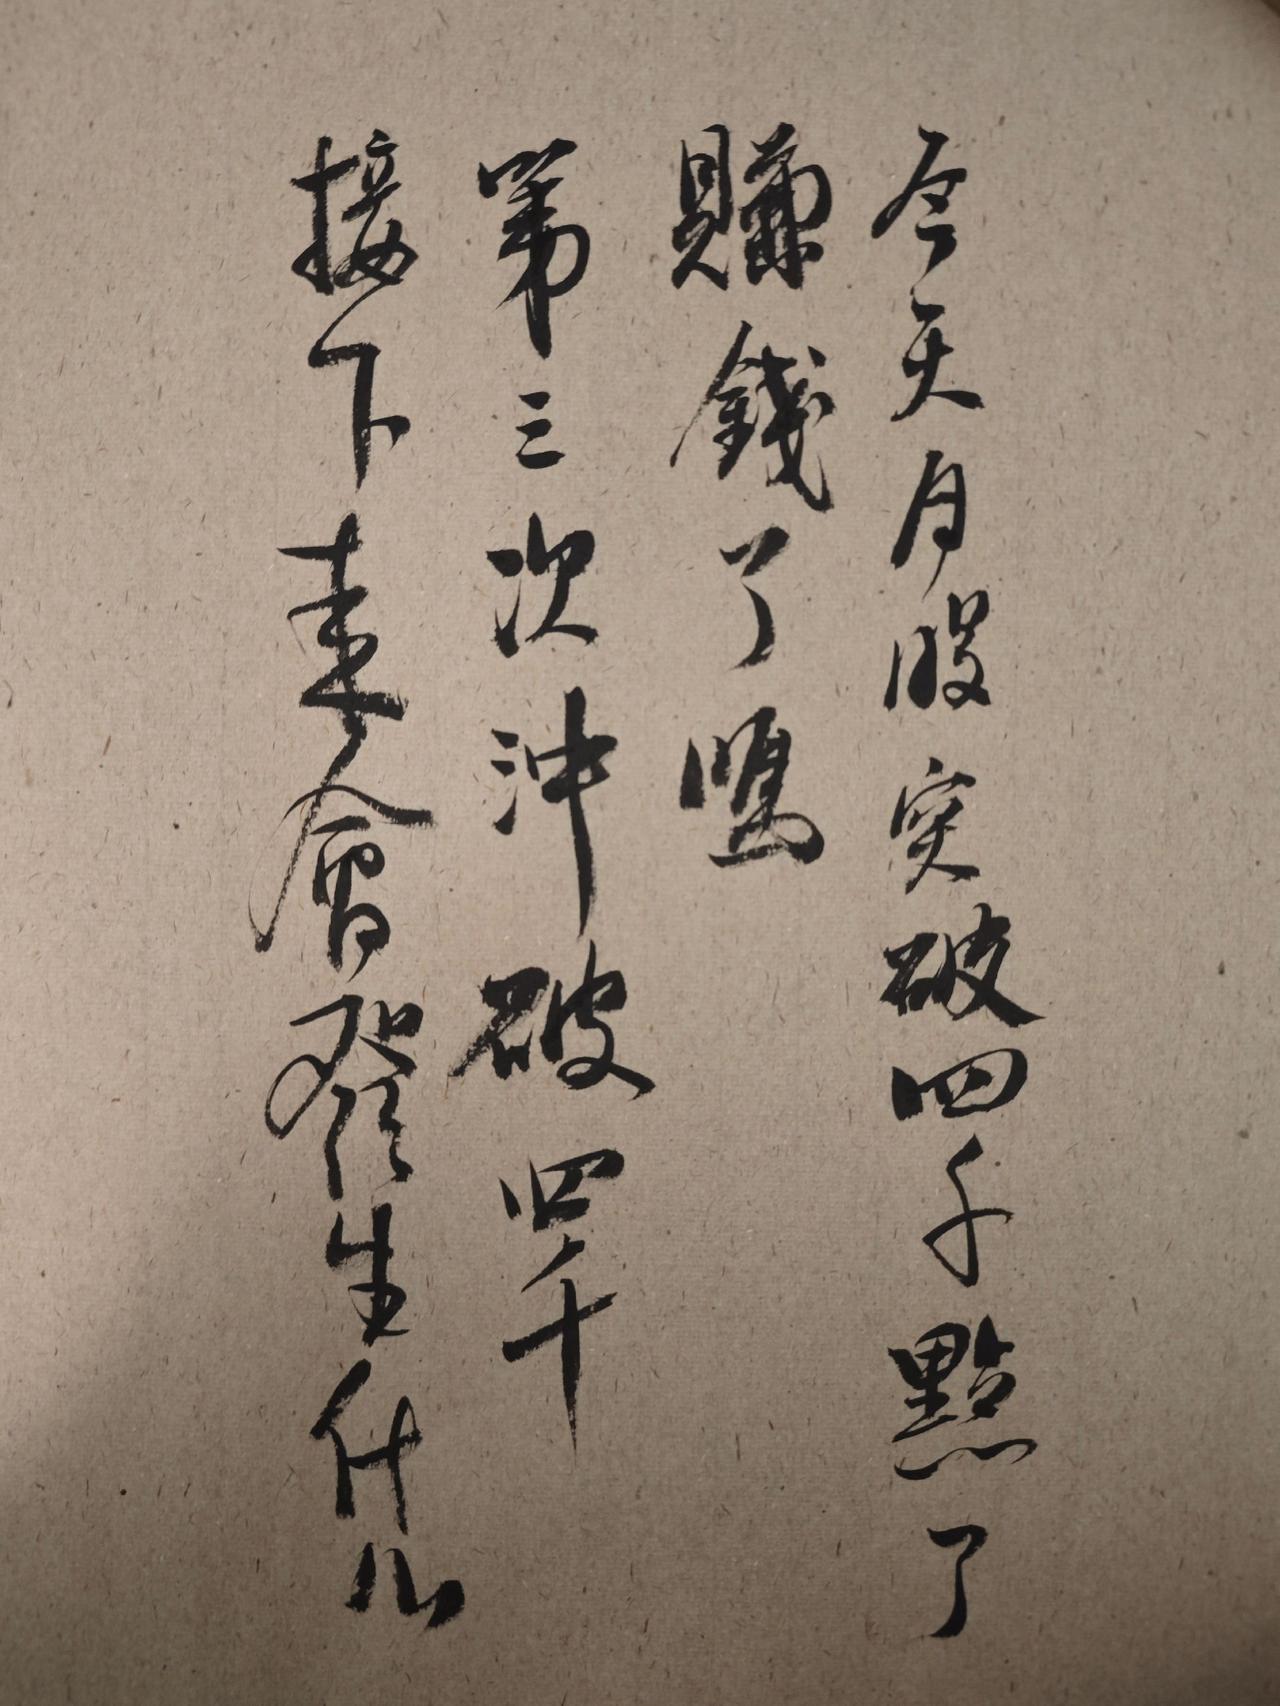 今天月股突破四千點了
賺錢了嗎
第三次沖破四千
接下来會發生什么